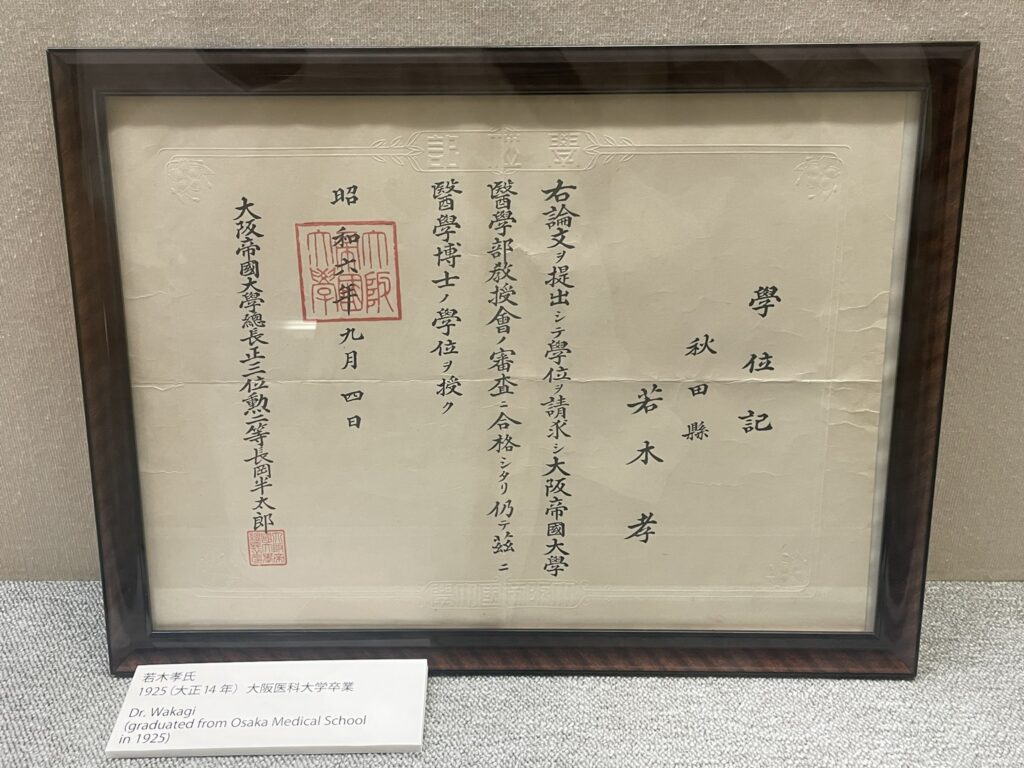 學位記
秋田縣
若木孝
右論文ヲ提出シテ學位ヲ請求シ大阪帝國大學
醫學部敎授會ノ審査ニ合格シタリ仍テ茲ニ
醫學博士ノ學位ヲ授ク
昭和六年九月四日
大阪帝國大學
大阪帝國大學總長正三位勲二等長岡半太郎
若木孝氏
1925(大正14年) 大阪医科大学卒業
Dr. Wakagi
(graduated from Osaka Medical School
in 1925)